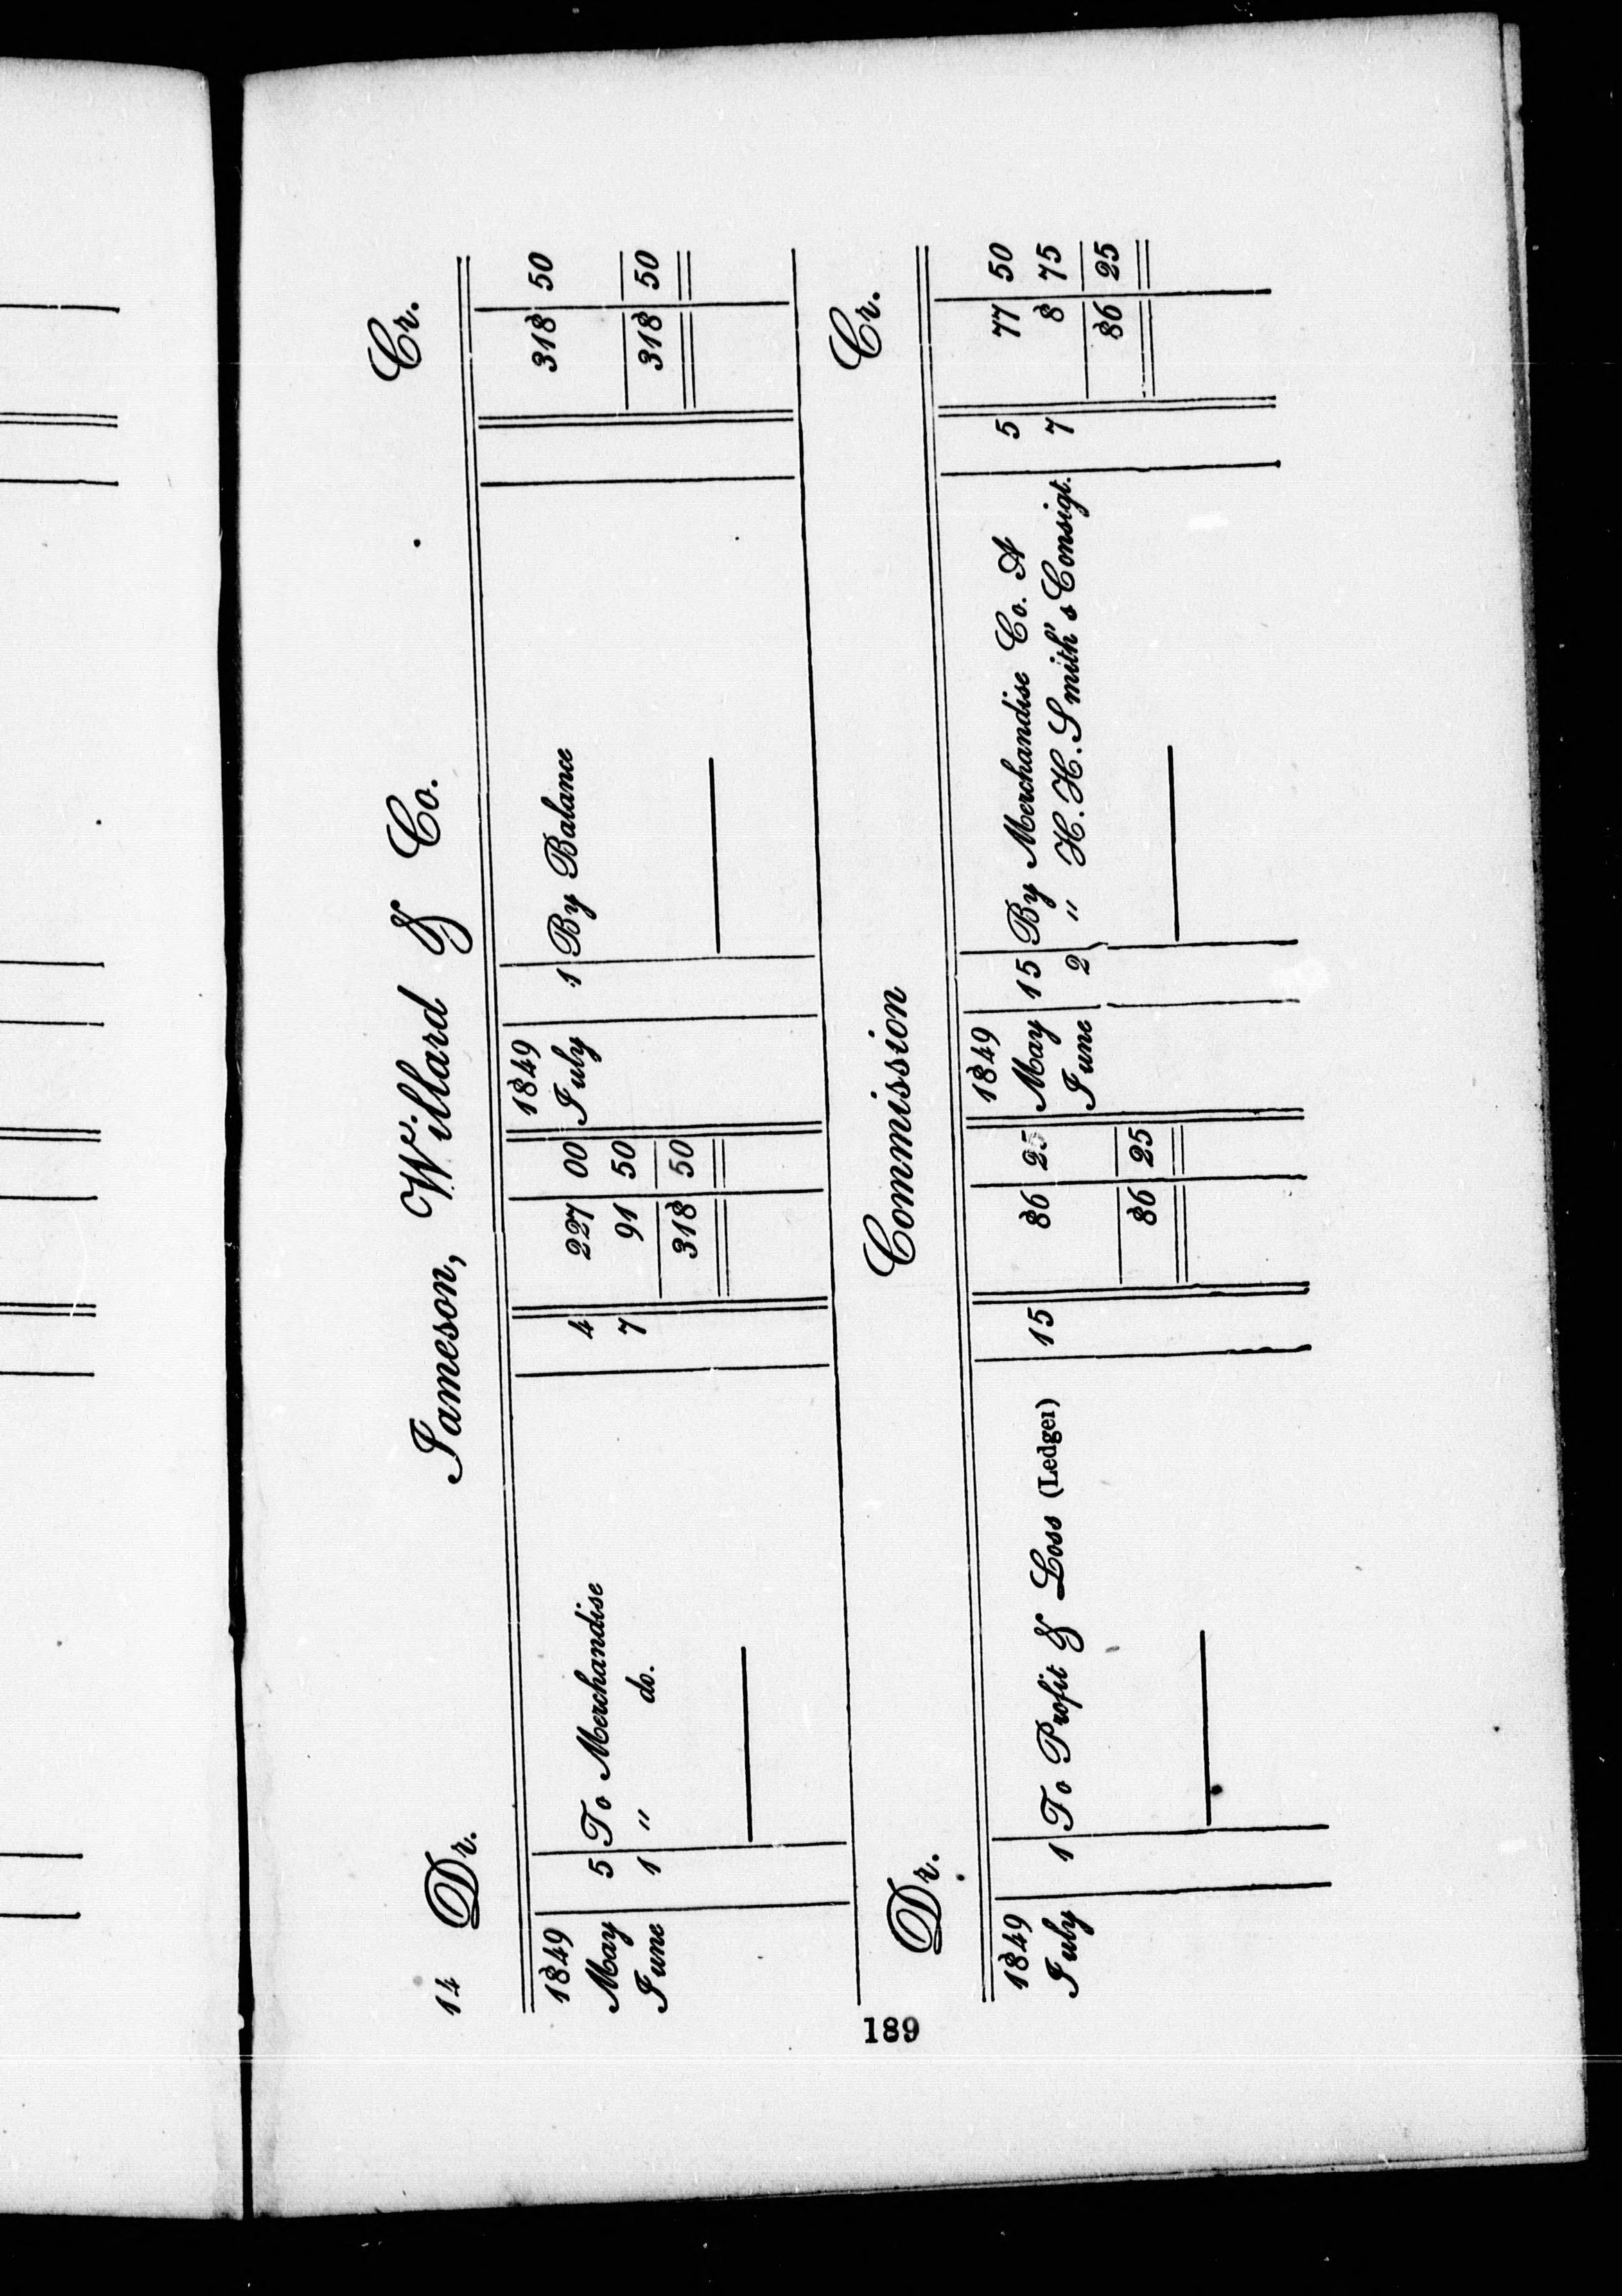 14 Dr. Jameson, Willard & Co. Cr.
1849 1849
May 5 To Merchandise 4 227 00 July 1 By Balance 318 50
June 1 " do. 7 91 50
318 50 318 50
Dr. Commission Cr.
1849 1849
July 1 To Profit & Loss (Ledger) 15 86 25 May 15 By Merchandise Co. A 5 77 50
June 2 " H. H. Smith's Consigt. 7 8 75
86 25 86 25
189